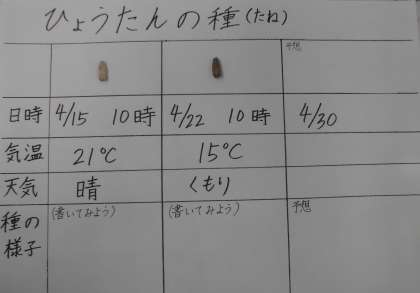 ひょうたんの種(たね)
予想
日時 4/15 10時 4/22 10時 4/30
気温 21℃ 15℃
天気 晴 くもり
種の様子 (書いてみよう) (書いてみよう) 予想